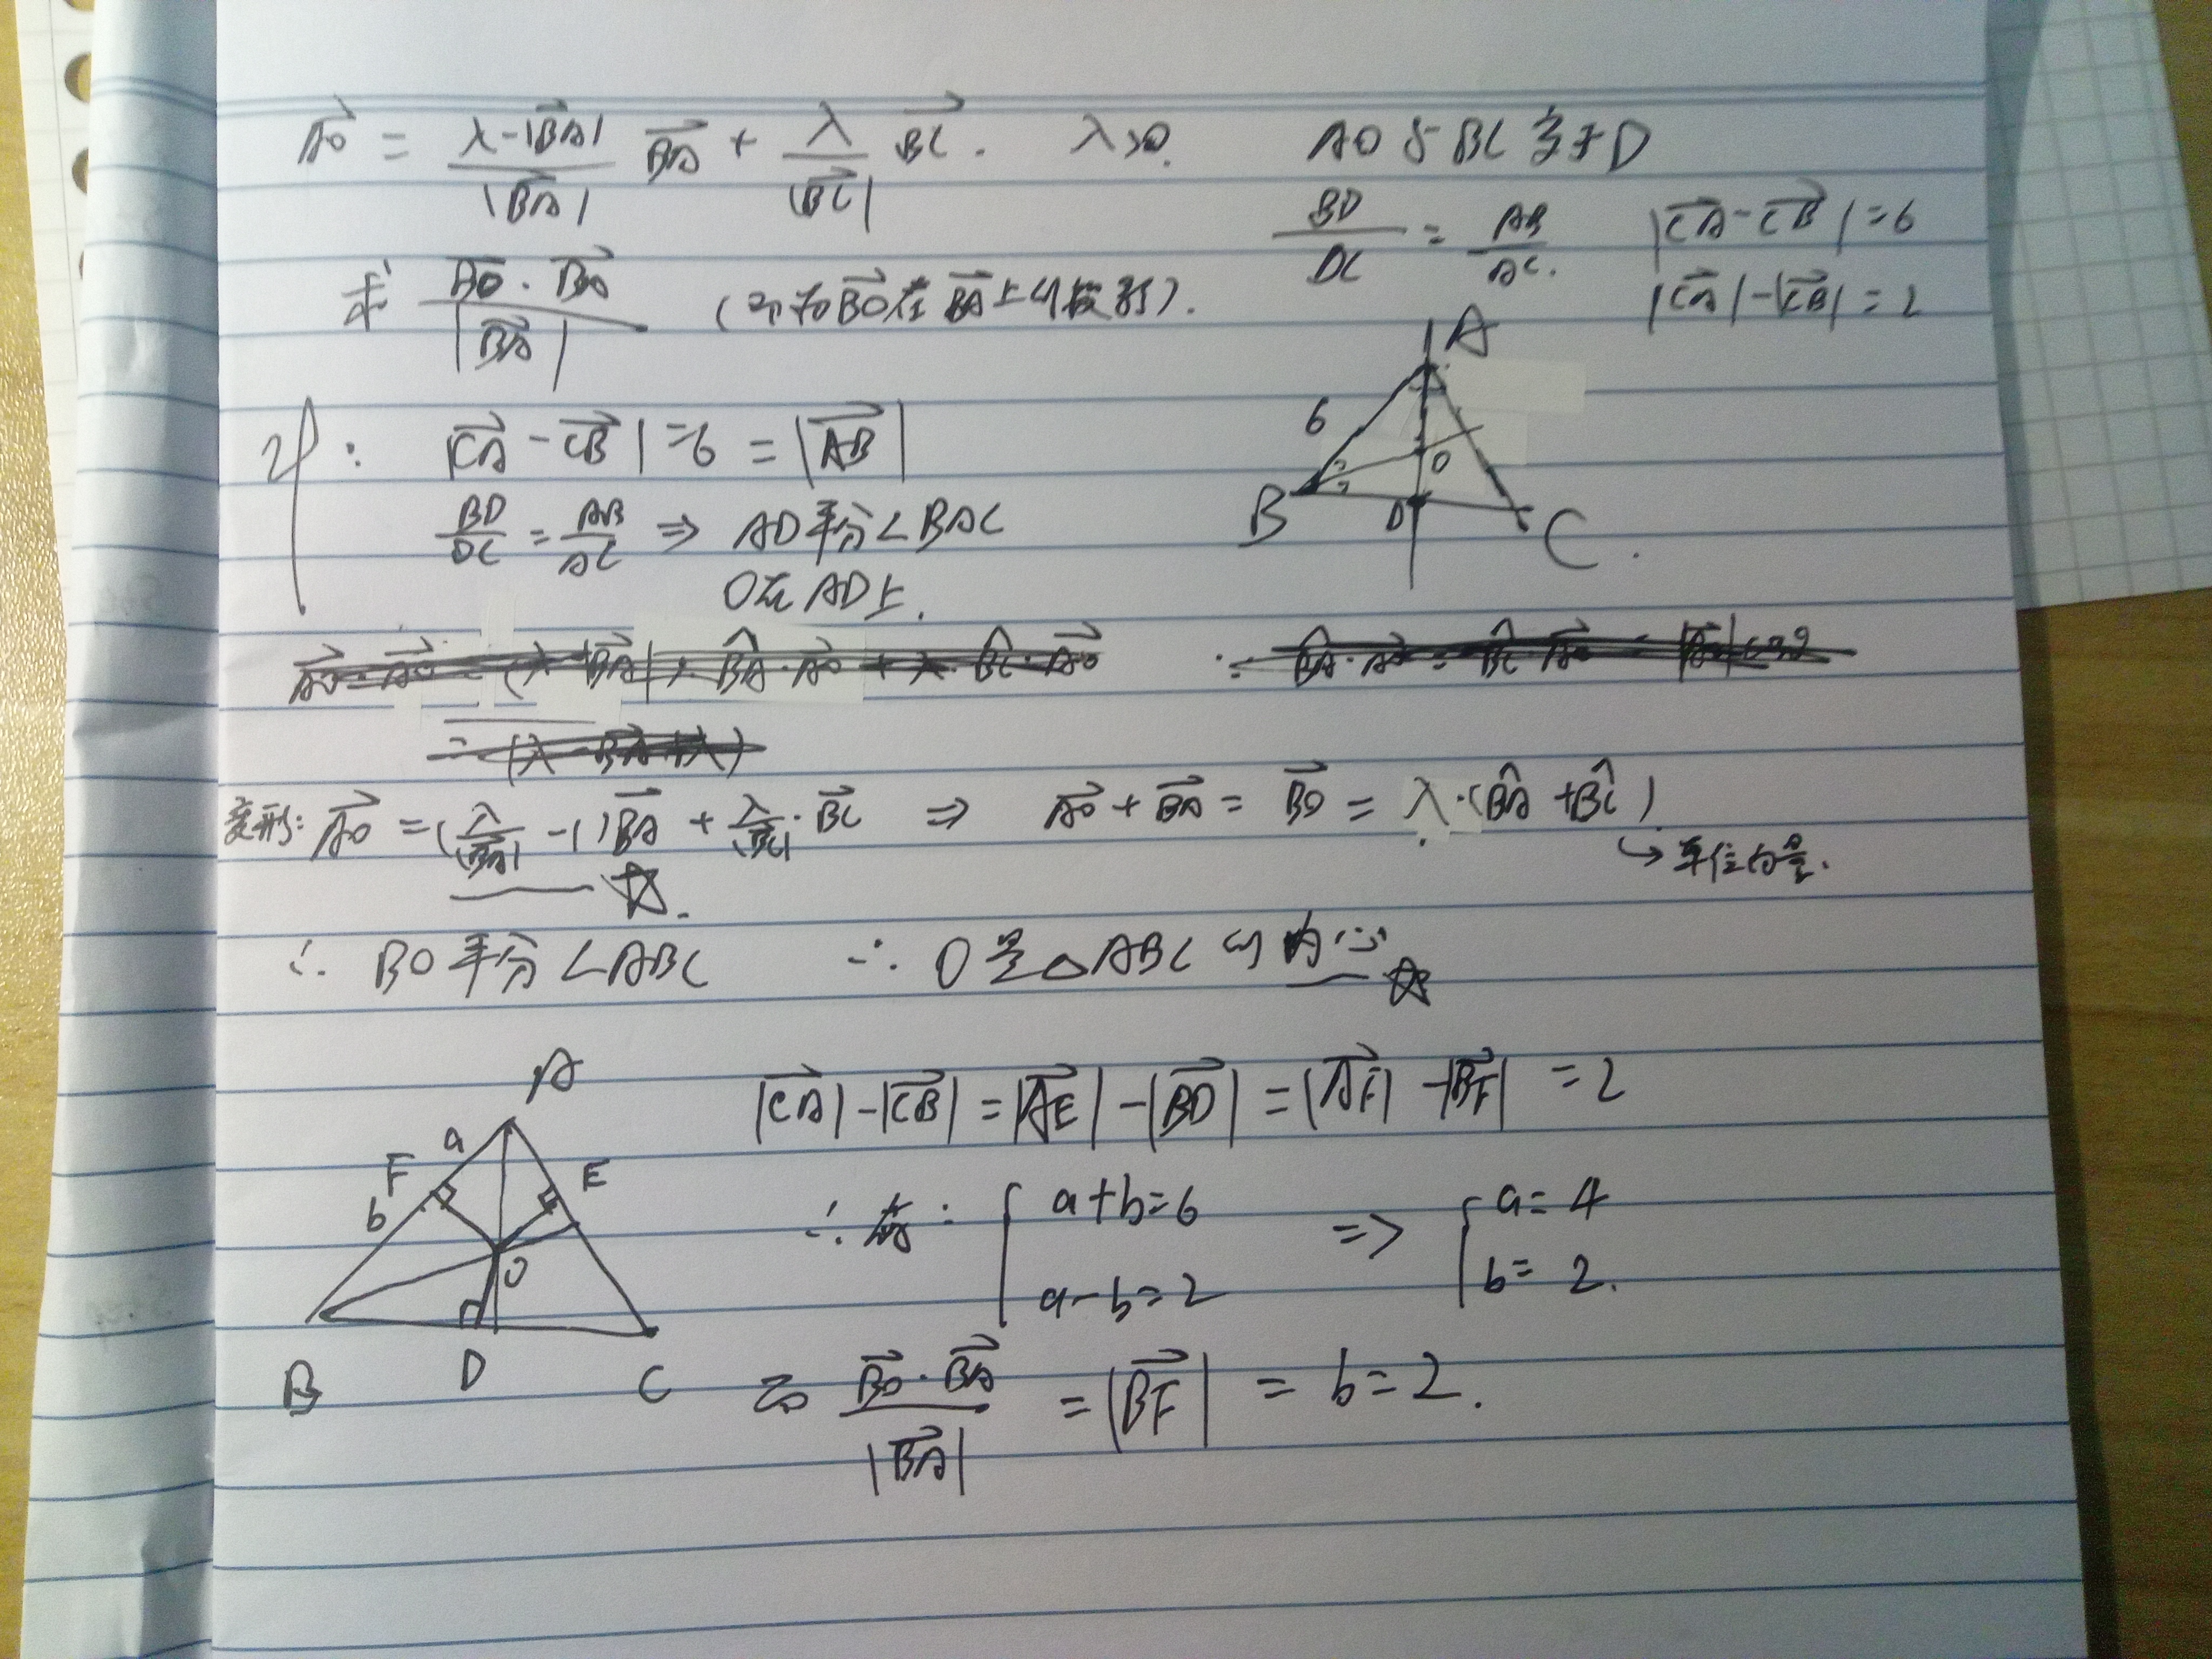 $\overrightarrow{AO} = \frac{\lambda - |\overrightarrow{BA}|}{|\overrightarrow{BA}|} \overrightarrow{BA} + \frac{\lambda}{|\overrightarrow{BC}|} \overrightarrow{BC}. \quad \lambda > 0. \quad$ AO与BC交于D
$\frac{BD}{DC} = \frac{AB}{AC}. \quad |\overrightarrow{CA} - \overrightarrow{CB}| = 6$
$|\overrightarrow{CA}| - |\overrightarrow{CB}| = 2$
求 $\frac{\overrightarrow{BO} \cdot \overrightarrow{BA}}{|\overrightarrow{BA}|}$ (即为$\overrightarrow{BO}$在$\overrightarrow{BA}$上的投影).
A
6
O
B
D
C.
$|\overrightarrow{CA} - \overrightarrow{CB}| = 6 = |\overrightarrow{AB}|$
$\frac{BD}{DC} = \frac{AB}{AC} \Rightarrow$ AD平分∠BAC
O在AD上.
变形: $\overrightarrow{AO} = (\frac{\lambda}{|\overrightarrow{BA}|} - 1)\overrightarrow{BA} + \frac{\lambda}{|\overrightarrow{BC}|} \cdot \overrightarrow{BC} \Rightarrow \overrightarrow{AO} + \overrightarrow{BA} = \overrightarrow{BO} = \lambda \cdot (\hat{BA} + \hat{BC})$
↳ 单位向量.
☆.
∴ BO平分∠ABC ∴ O是△ABC的内心 ☆
A
a
F
E
b
O
B
D
C
$|\overrightarrow{CA}| - |\overrightarrow{CB}| = |\overrightarrow{AE}| - |\overrightarrow{BD}| = |\overrightarrow{AF}| - |\overrightarrow{BF}| = 2$
∴ 有: $\begin{cases} a+b=6 \\ a-b=2 \end{cases} \Rightarrow \begin{cases} a=4 \\ b=2. \end{cases}$
而 $\frac{\overrightarrow{BO} \cdot \overrightarrow{BA}}{|\overrightarrow{BA}|} = |\overrightarrow{BF}| = b = 2.$